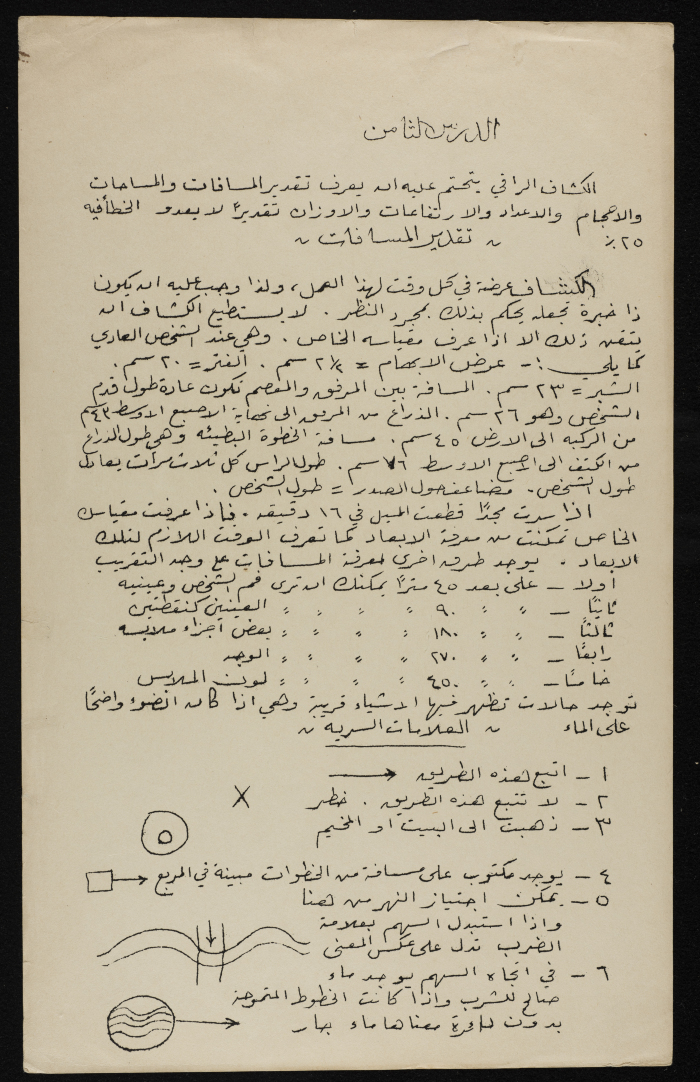 الدرس الثامن
الكشاف الراقي يتحتم عليه ان يعرف تقدير المسافات والمساحات
والاحجام والاعداد والارتفاعات والاوزان تقديرًا لا يعدو الخطأ فيه
٢٥٪ " تقدير المسافات "
الكشاف عرضة في كل وقت لهذا العمل، ولذا وجب عليه ان يكون
ذا خبرة تجعله يحكم بذلك بمجرد النظر. لا يستطيع الكشاف ان
يتقن ذلك الا اذا عرف مقياسه الخاص. وهي عند الشخص العادي
كما يلي :- عرض الابهام = ٢½ سم. الفتر = ٢٠ سم.
الشبر = ٢٣ سم. المسافة بين المرفق والمعصم تكون عادة طول قدم
الشخص وهو ٢٦ سم. الذراع من المرفق الى نهاية الاصبع الاوسط ٤٣ سم
من الركبه الى الارض ٤٥ سم. مسافة الخطوة البطيئه وهي طول الذراع
من الكتف الى الاصبع الاوسط ٧٦ سم. طول الراس كل ثلاث مرات يعادل
طول الشخص. مضاعف حول الصدر = طول الشخص.
اذا سرت مجدًا قطعت الميل في ١٦ دقيقه. فاذا عرفت مقياسك
الخاص تمكنت من معرفة الابعاد كما تعرف الوقت اللازم لتلك
الابعاد. يوجد طرق اخرى لمعرفة المسافات على وجه التقريب
اولا - على بعد ٤٥ مترًا يمكنك ان ترى فم الشخص وعينيه
ثانيًا - " " ٩٠ " " " " العينين كنقطتين
ثالثًا - " " ١٨٠ " " " " بعض اجزاء ملابسه
رابعًا - " " ٢٧٠ " " " " الوجه
خامسًا - " " ٤٥٠ " " " " لون الملابس
توجد حالات تظهر فيها الاشياء قريبة وهي اذا كان الضوء واضحًا
على الماء " العلامات السريه "
١ - اتبع هذه الطريق
٢ - لا تتبع هذه الطريق. خطر
٣ - ذهبت الى البيت او المخيم
٤ - يوجد مكتوب على مسافة من الخطوات مبينة في المربع
٥ - يمكن اجتياز النهر من هنا
واذا استبدل السهم بعلامة
الضرب تدل على عكس المعنى
٦ - في اتجاه السهم يوجد ماء
صالح للشرب واذا كانت الخطوط المتموجة
بدون دائرة معناها ماء جار